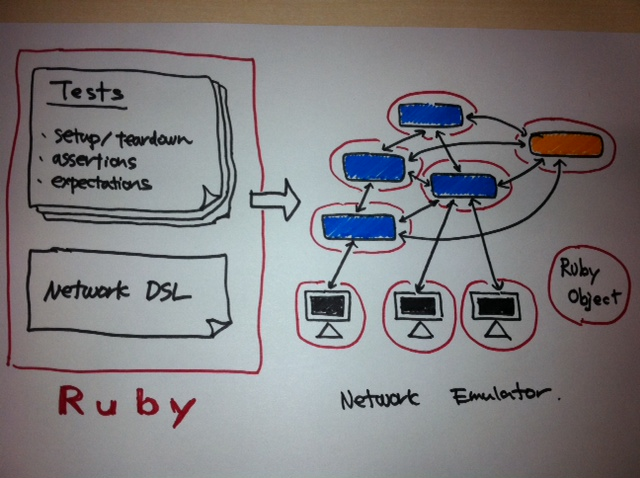 Tests
· setup/teardown
· assertions
· expectations
Network DSL
Ruby
Ruby
Object
Network Emulator.